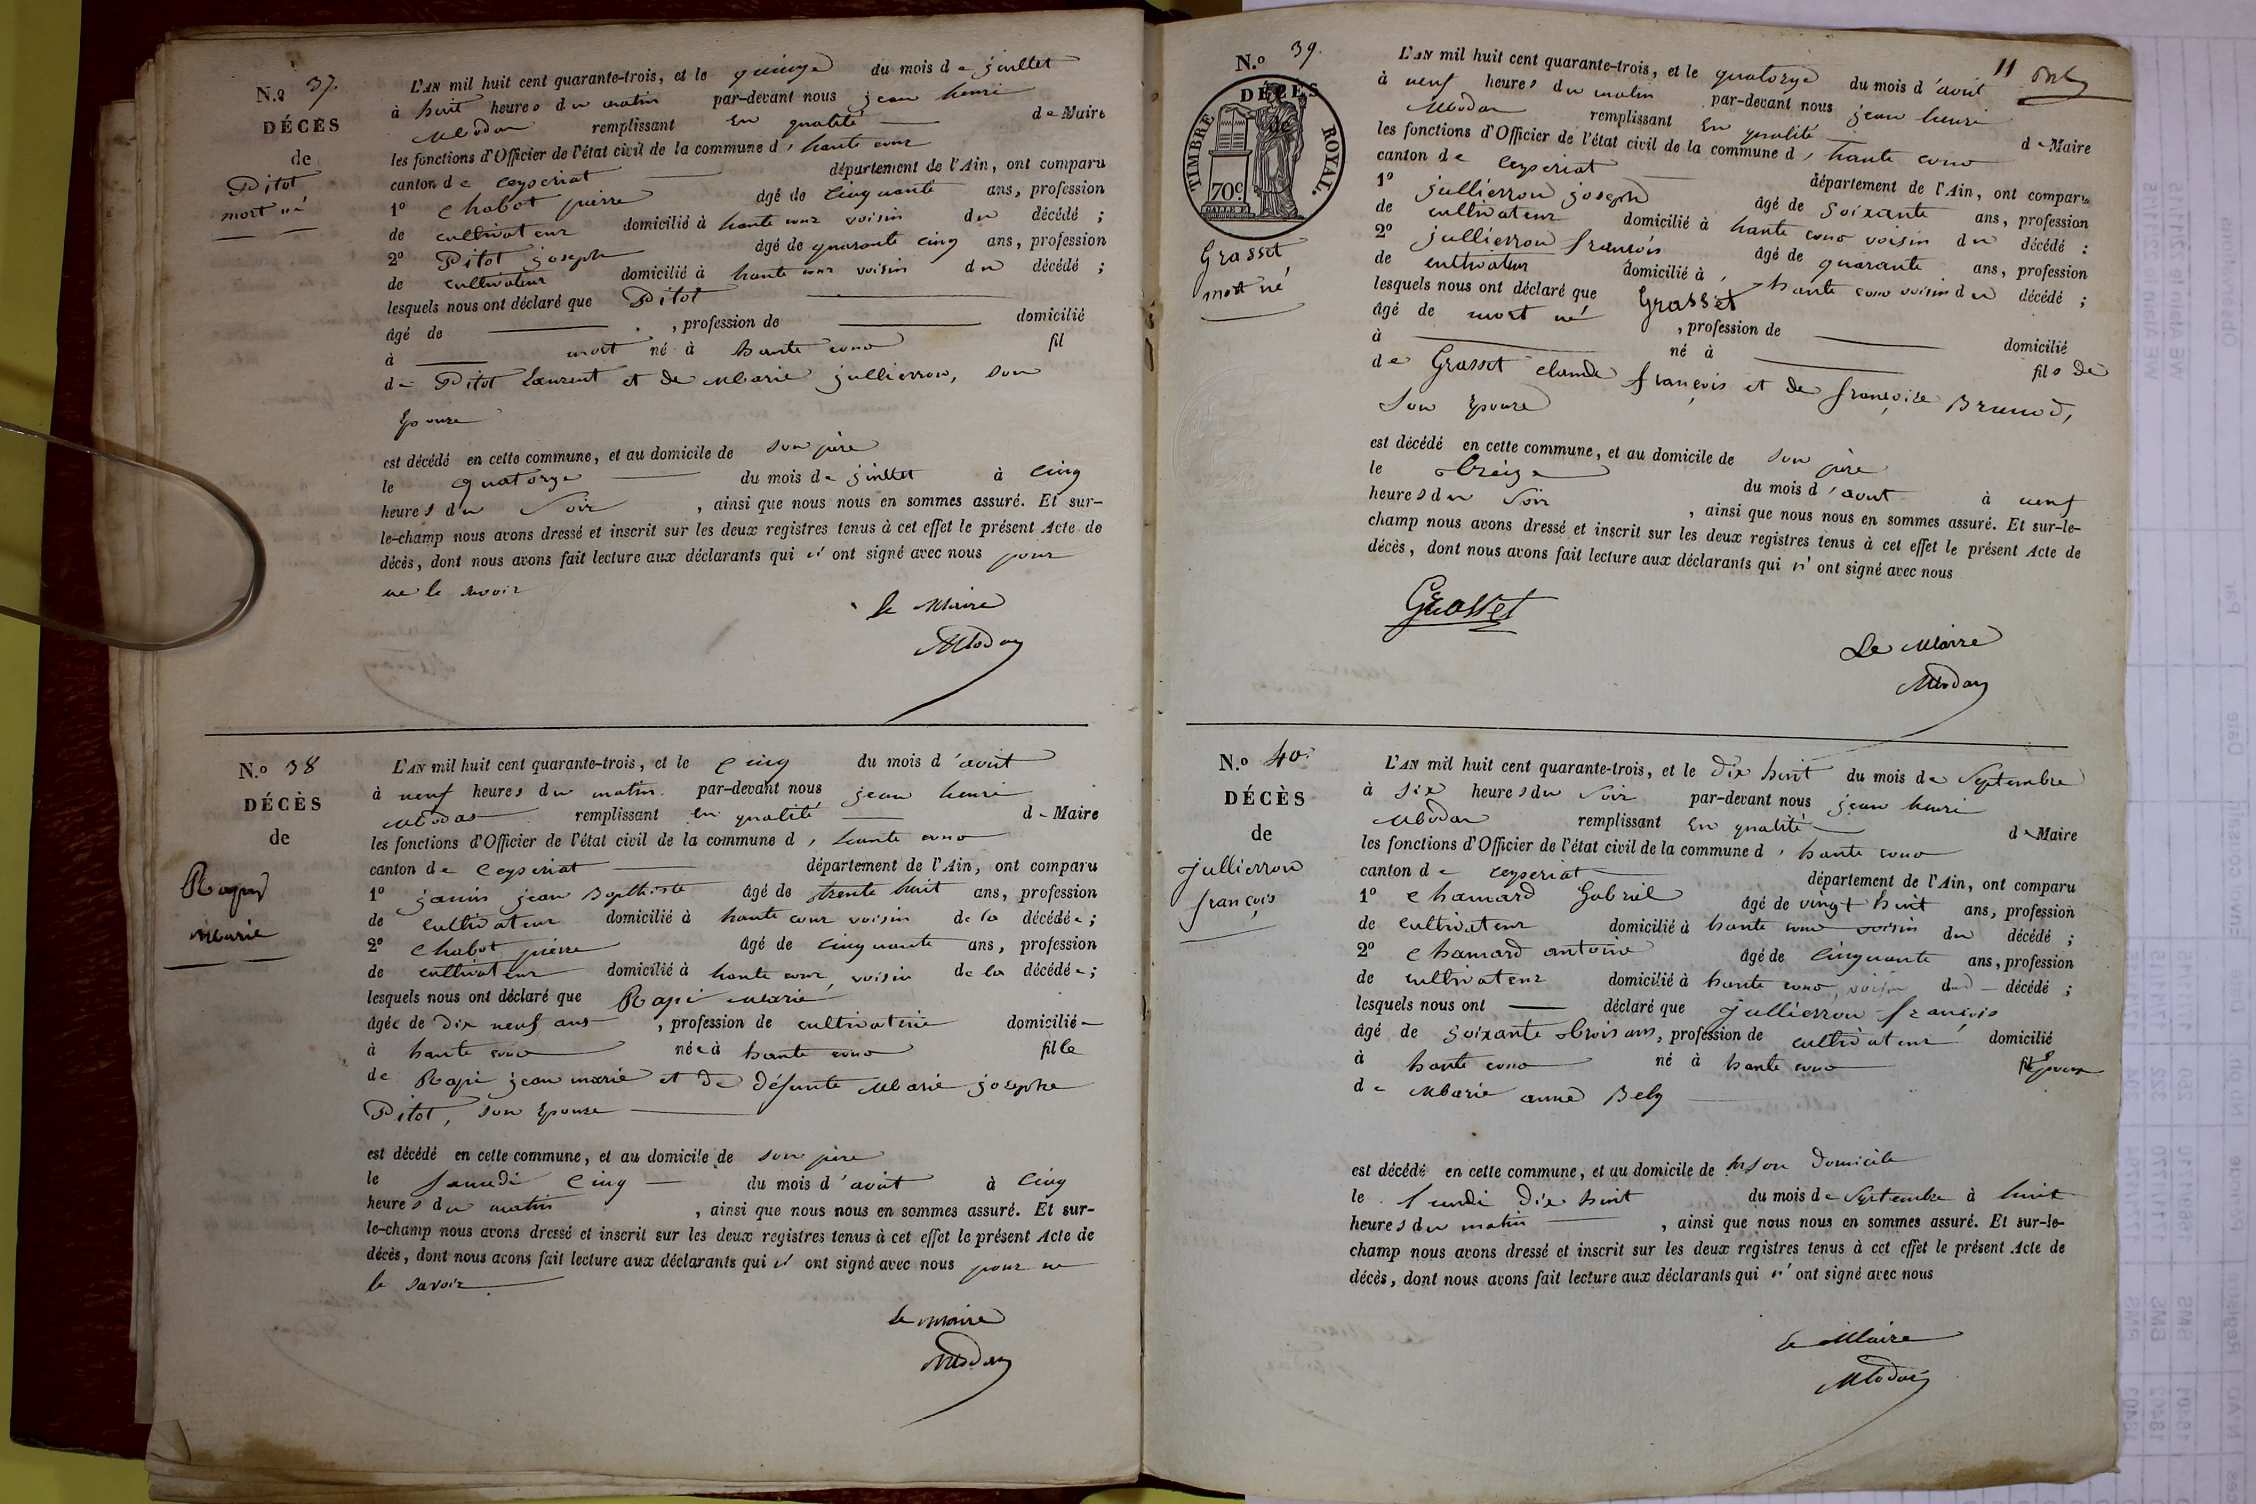 N.º 37.
DÉCÈS
de
Pitot
mort né
L'AN mil huit cent quarante-trois, et le quinze du mois de juillet
à huit heures du matin par-devant nous jean henri
Modas remplissant En qualité de Maire
les fonctions d'Officier de l'état civil de la commune d'haute cour
canton de ceyseriat département de l'Ain, ont comparu
1º Chabot pierre âgé de cinquante ans, profession
de cultivateur domicilié à haute cour voisin du décédé ;
2º Pitot joseph âgé de quarante cinq ans, profession
de cultivateur domicilié à haute cour voisin du décédé ;
lesquels nous ont déclaré que Pitot
âgé de , profession de domicilié
à mort né à haute cour fil
de Pitot Laurent et de Marie jullierron, son
Epouse
est décédé en cette commune, et au domicile de son père
le quatorze du mois de juillet à cinq
heures du soir , ainsi que nous nous en sommes assuré. Et sur-
le-champ nous avons dressé et inscrit sur les deux registres tenus à cet effet le présent Acte de
décès, dont nous avons fait lecture aux déclarants qui n'ont signé avec nous pour
ne le savoir
le Maire
Modas
N.º 38
DÉCÈS
de
Rapi
Marie
L'AN mil huit cent quarante-trois, et le cinq du mois d'août
à neuf heures du matin par-devant nous jean henri
Modas remplissant En qualité de Maire
les fonctions d'Officier de l'état civil de la commune d'haute cour
canton de ceyseriat département de l'Ain, ont comparu
1º janin jean Bapthiste âgé de trente huit ans, profession
de cultivateur domicilié à haute cour voisin de la décédée ;
2º Chabot pierre âgé de cinquante ans, profession
de cultivateur domicilié à haute cour, voisin de la décédée ;
lesquels nous ont déclaré que Rapi Marie
âgée de dix neuf ans , profession de cultivatrice domiciliée
à haute cour née à haute cour fille
de Rapi jean marie et de défunte Marie josephe
Pitot, son Epouse
est décédé en cette commune, et au domicile de son père
le samedi cinq du mois d'août à cinq
heures du matin , ainsi que nous nous en sommes assuré. Et sur-
le-champ nous avons dressé et inscrit sur les deux registres tenus à cet effet le présent Acte de
décès, dont nous avons fait lecture aux déclarants qui n'ont signé avec nous pour ne
le savoir
le Maire
Modas
11
N.º 39.
DÉCÈS
de
TIMBRE ROYAL.
70c
Grasset
mort né
L'AN mil huit cent quarante-trois, et le quatorze du mois d'août
à neuf heures du matin par-devant nous jean henri
Modas remplissant En qualité de Maire
les fonctions d'Officier de l'état civil de la commune d'haute cour
canton de ceyseriat département de l'Ain, ont comparu
1º jullierron joseph âgé de soixante ans, profession
de cultivateur domicilié à haute cour voisin du décédé ;
2º jullierron françois âgé de quarante ans, profession
de cultivateur domicilié à haute cour voisin du décédé ;
lesquels nous ont déclaré que Grasset
âgé de mort né , profession de domicilié
à né à fils de
de Grasset claude françois et de françoise Brunod,
son Epouse
est décédé en cette commune, et au domicile de son père
le treize du mois d'août à neuf
heures du soir , ainsi que nous nous en sommes assuré. Et sur-le-
champ nous avons dressé et inscrit sur les deux registres tenus à cet effet le présent Acte de
décès, dont nous avons fait lecture aux déclarants qui n'ont signé avec nous
Grasset
Le Maire
Modas
N.º 40.
DÉCÈS
de
jullierron
françois
L'AN mil huit cent quarante-trois, et le dix huit du mois de Septembre
à six heures du soir par-devant nous jean henri
Modas remplissant En qualité de Maire
les fonctions d'Officier de l'état civil de la commune d'haute cour
canton de ceyseriat département de l'Ain, ont comparu
1º chanard Gabriel âgé de vingt huit ans, profession
de cultivateur domicilié à haute cour voisin du décédé ;
2º chanard antoine âgé de cinquante ans, profession
de cultivateur domicilié à haute cour, voisin du décédé ;
lesquels nous ont déclaré que jullierron françois
âgé de soixante trois ans, profession de cultivateur domicilié
à haute cour né à haute cour Epoux
de Marie anne Bely
est décédé en cette commune, et au domicile de son Domicile
le lundi dix huit du mois de Septembre à huit
heures du matin , ainsi que nous nous en sommes assuré. Et sur-le-
champ nous avons dressé et inscrit sur les deux registres tenus à cet effet le présent Acte de
décès, dont nous avons fait lecture aux déclarants qui n'ont signé avec nous
le Maire
Modas